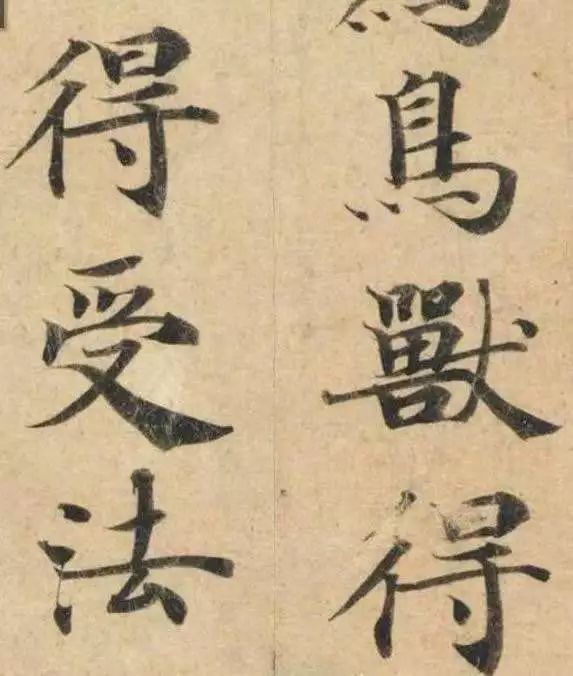 鳥獸得
得受法